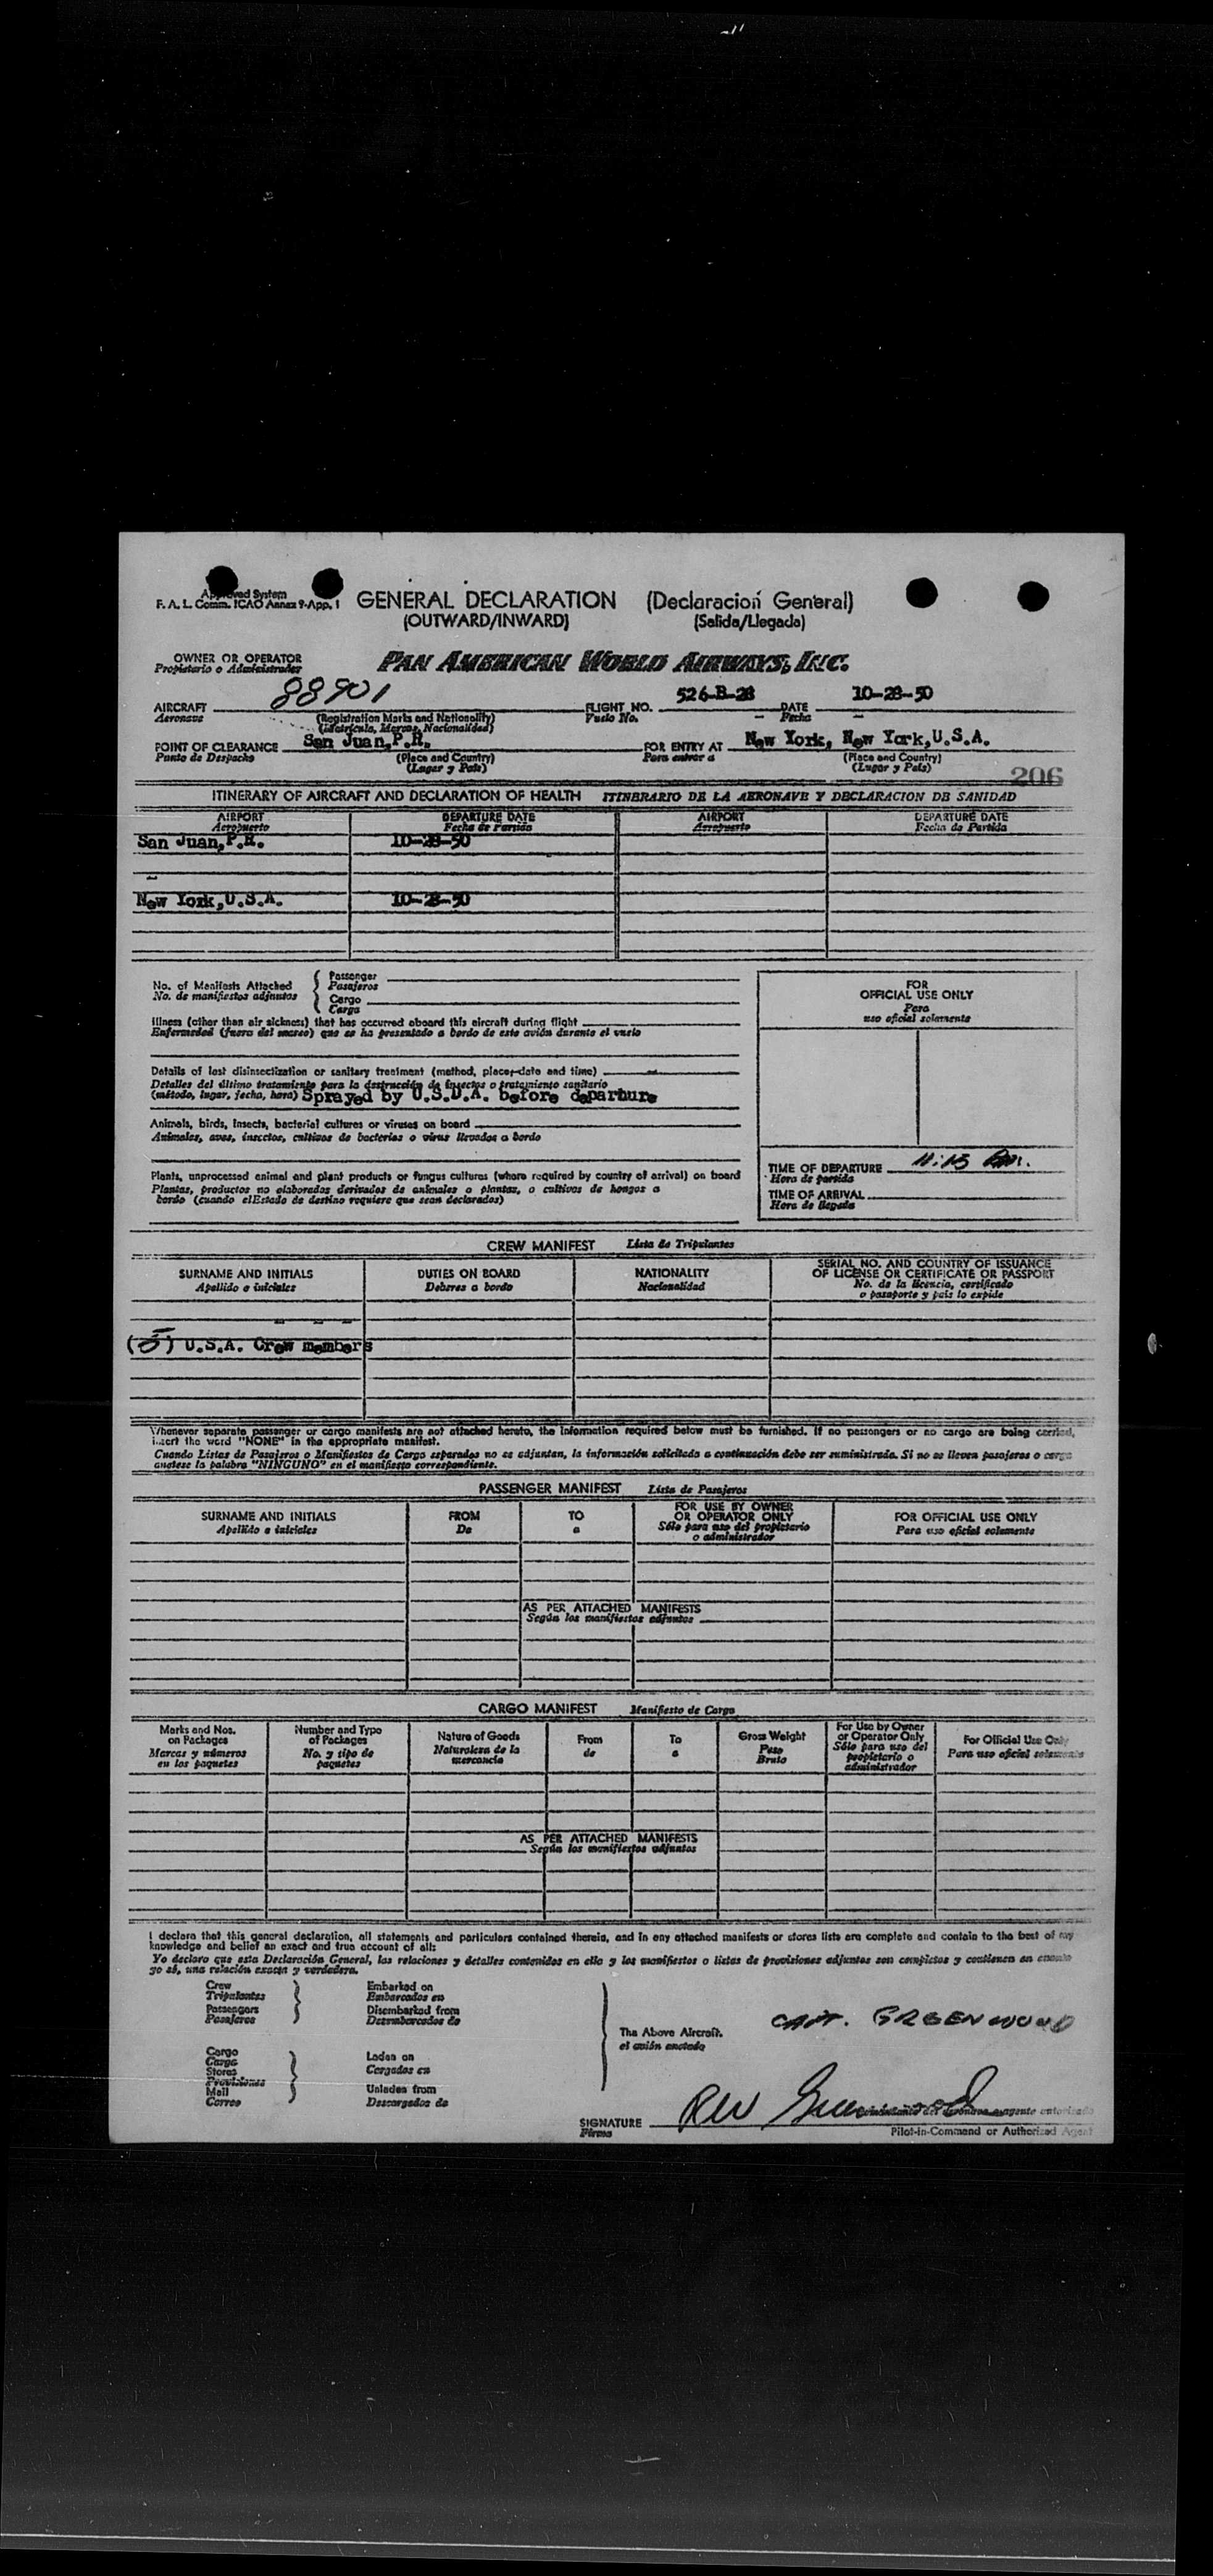 Approved System
F. A. L. Comm. ICAO Annex 9-App. 1
GENERAL DECLARATION (Declaración General)
(OUTWARD/INWARD) (Salida/Llegada)
OWNER OR OPERATOR
Propietario o Administrador
PAN AMERICAN WORLD AIRWAYS, INC.
AIRCRAFT 88901 FLIGHT NO. 526-B-28 DATE 10-28-50
Aeronave (Registration Marks and Nationality) Vuelo No. Fecha
(Matrícula, Marcas, Nacionalidad)
POINT OF CLEARANCE San Juan,P.R. FOR ENTRY AT New York, New York,U.S.A.
Punto de Despacho (Place and Country) Para entrar a (Place and Country)
(Lugar y País) (Lugar y País)
206
ITINERARY OF AIRCRAFT AND DECLARATION OF HEALTH ITINERARIO DE LA AERONAVE Y DECLARACION DE SANIDAD
AIRPORT DEPARTURE DATE AIRPORT DEPARTURE DATE
Aeropuerto Fecha de Partida Aeropuerto Fecha de Partida
San Juan,P.R. 10-28-50
New York,U.S.A. 10-28-50
No. of Manifests Attached { Passenger
No. de manifiestos adjuntos Pasajeros
Cargo
Carga
Illness (other than air sickness) that has occurred aboard this aircraft during flight
Enfermedad (fuera del mareo) que se ha presentado a bordo de este avión durante el vuelo
Details of last disinsectization or sanitary treatment (method, place, date and time)
Detalles del último tratamiento para la destrucción de insectos o tratamiento sanitario
(método, lugar, fecha, hora) Sprayed by U.S.D.A. before departure
Animals, birds, insects, bacterial cultures or viruses on board
Animales, aves, insectos, cultivos de bacterias o virus llevados a bordo
Plants, unprocessed animal and plant products or fungus cultures (where required by country of arrival) on board
Plantas, productos no elaborados derivados de animales o plantas, o cultivos de hongos a
bordo (cuando elEstado de destino requiere que sean declarados)
FOR
OFFICIAL USE ONLY
Para
uso oficial solamente
TIME OF DEPARTURE 11:15
Hora de partida
TIME OF ARRIVAL
Hora de llegada
CREW MANIFEST Lista de Tripulantes
SURNAME AND INITIALS DUTIES ON BOARD NATIONALITY SERIAL NO. AND COUNTRY OF ISSUANCE
OF LICENSE OR CERTIFICATE OR PASSPORT
Apellido e iniciales Deberes a bordo Nacionalidad No. de la licencia, certificado
o pasaporte y país lo expide
- - -
(5) U.S.A. Crew members
Whenever separate passenger or cargo manifests are not attached hereto, the information required below must be furnished. If no passengers or no cargo are being carried,
insert the word "NONE" in the appropriate manifest.
Cuando Listas de Pasajeros o Manifiestos de Cargo separados no se adjuntan, la información solicitada a continuación debe ser suministrada. Si no se lleven pasajeros o carga
anótese la palabra "NINGUNO" en el manifiesto correspondiente.
PASSENGER MANIFEST Lista de Pasajeros
SURNAME AND INITIALS FROM TO FOR USE BY OWNER
OR OPERATOR ONLY FOR OFFICIAL USE ONLY
Apellido e iniciales De a Sólo para uso del propietario
o administrador Para uso oficial solamente
AS PER ATTACHED MANIFESTS
Según los manifiestos adjuntos
CARGO MANIFEST Manifiesto de Carga
Marks and Nos.
on Packages
Marcas y números
en los paquetes
Number and Type
of Packages
No. y tipo de
paquetes
Nature of Goods
Naturaleza de la
mercancía
From
de
To
a
Gross Weight
Peso
Bruto
For Use by Owner
or Operator Only
Sólo para uso del
propietario o
administrador
For Official Use Only
Para uso oficial solamente
AS PER ATTACHED MANIFESTS
Según los manifiestos adjuntos
I declare that this general declaration, all statements and particulars contained therein, and in any attached manifests or stores lists are complete and contain to the best of my
knowledge and belief an exact and true account of all:
Yo declaro que esta Declaración General, las relaciones y detalles contenidos en ella y los manifiestos o listas de provisiones adjuntos son completos y contienen en cuanto
yo sé, una relación exacta y verdadera.
Crew Embarked on
Tripulantes Embarcados en
Passengers Disembarked from
Pasajeros Desembarcados de
The Above Aircraft.
el avión anotado
CAPT. GREENWOOD
Cargo
Carga Laden on
Stores Cargados en
Provisiones
Mail Unladen from
Correo Descargados de
SIGNATURE RW Greenwood
Firma
Comandante del aeronave o agente autorizado
Pilot-in-Command or Authorized Agent